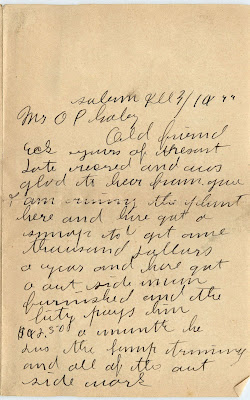 Salem Ill 3/19
Mr O P haley
Old friend
yours of resent
date recived and was
glad to hear from you
I am runing this plant
here and have got a
snap to get one
thousand dollars
a year and have got
a out side man
furnished and the
City pays him
$42.50 a month he
dus the lamp triming
and all of the out
side work